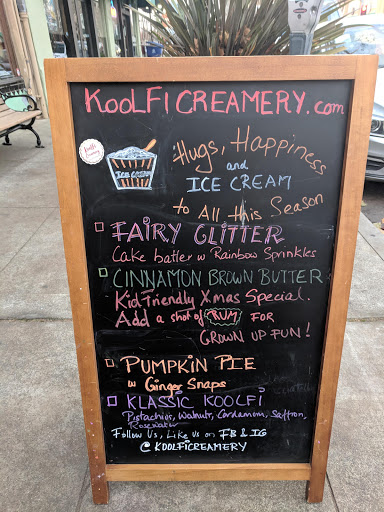 KOOLFI CREAMERY.com
Hugs, Happiness
and
ICE CREAM
ICE CREAM
to All this Season
FAIRY GLITTER
Cake batter w Rainbow Sprinkles
CINNAMON BROWN BUTTER
Kid Friendly Xmas Special.
Add a shot of RUM FOR
GROWN UP FUN!
PUMPKIN PIE
w Ginger Snaps
KLASSIC KOOLFI
Pistachios, Walnut, Cardamom, Saffron,
Rosewater
Follow Us, Like us on FB & IG
@KOOLFICREAMERY